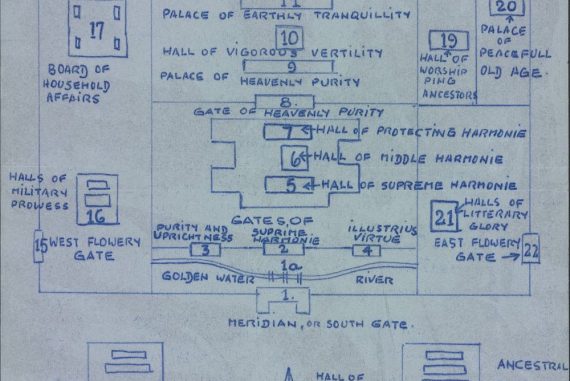 11
PALACE OF EARTHLY TRANQUILLITY
10
HALL OF VIGOROUS VERTILITY
9
PALACE OF HEAVENLY PURITY
8.
GATE OF HEAVENLY PURITY
17
BOARD OF
HOUSEHOLD
AFFAIRS
19
HALL OF
WORSHIP
PING
ANCESTORS
20
PALACE
OF
PEACEFULL
OLD AGE.
7 HALL OF PROTECTING HARMONIE
6 HALL OF MIDDLE HARMONIE
5 HALL OF SUPREME HARMONIE
HALLS OF
MILITARY
PROWESS
16
15 WEST FLOWERY
GATE
GATES, OF
PURITY AND
UPRICHTNESS
3
SUPRIME
HARMONIE
2
ILLUSTRIUS
VIRTUE
4
21 HALLS OF
LITTERARY
GLORY
EAST FLOWERY
GATE
22
1a
GOLDEN WATER RIVER
1.
MERIDIAN, OR SOUTH GATE.
HALL OF
ANCESTRAL